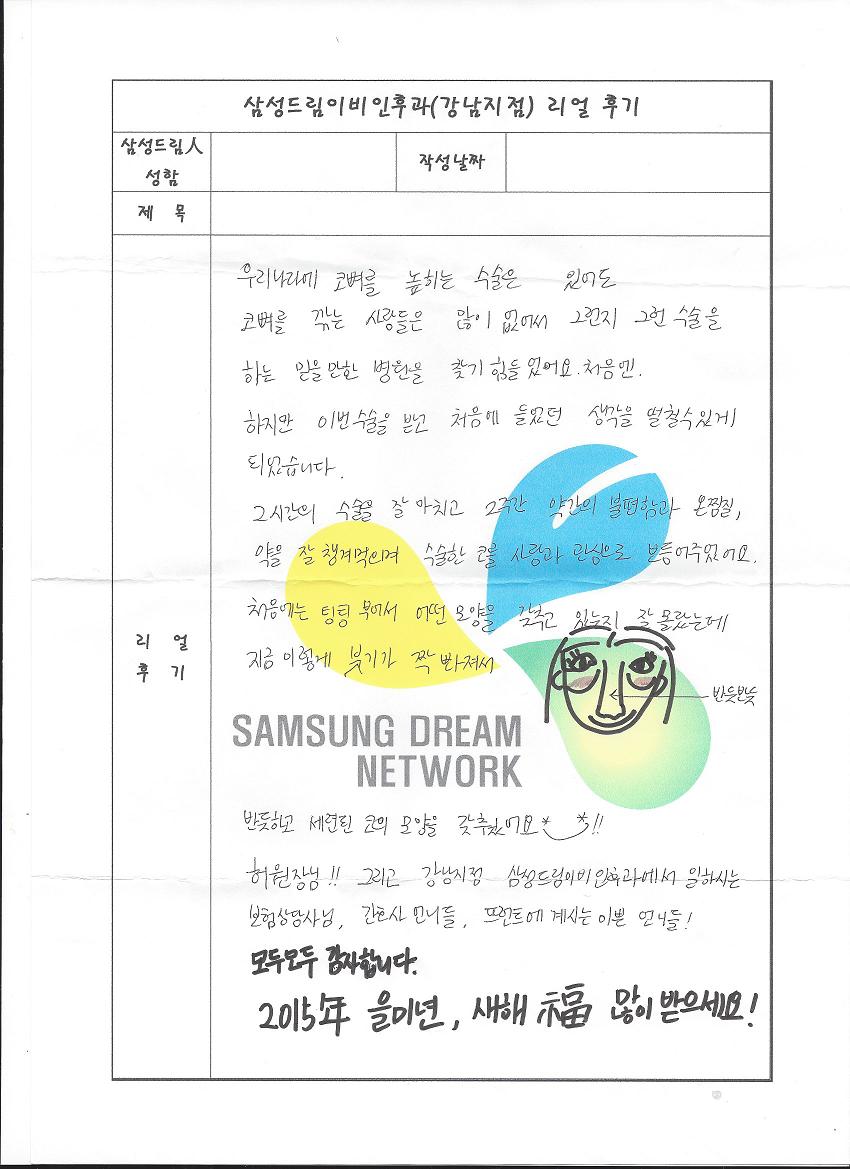 삼성드림이비인후과(강남지점) 리얼 후기
삼성드림人 성함
작성날짜
제 목
리 얼 후 기
우리나라에 코뼈를 높히는 수술은 있어도
코뼈를 깎는 사람들은 많이 없어서 그런지 그런 수술을
하는 믿을만한 병원을 찾기 힘들었어요. 처음엔.
하지만 이번수술을 받고 처음에 들었던 생각을 떨칠수있게
되었습니다.
2시간의 수술을 잘 마치고 2주간 약간의 불편함과 온찜질,
약을 잘 챙겨먹으며 수술한 코를 사랑과 관심으로 보듬어주었어요.
처음에는 팅팅 부어서 어떤 모양을 갖추고 있는지 잘 몰랐는데
지금 이렇게 붓기가 쫙 빠져서
반듯반듯
SAMSUNG DREAM
NETWORK
반듯하고 세련된 코의 모양을 갖추었어요*‿*!!
허원장님!! 그리고 강남지점 삼성드림이비인후과에서 일하시는
보험상담사님, 간호사 언니들, 프런트에 계시는 이쁜 언니들!
모두모두 감사합니다.
2015年 을미년, 새해 福 많이 받으세요!